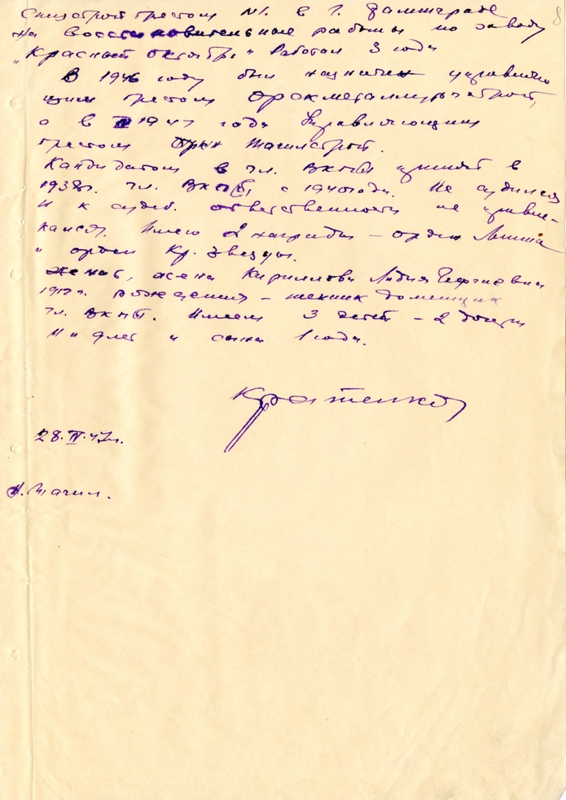 8
Спецстрой трестом №1. в г. Сталинграде
на восстановительные работы по заводу
"Красный октябрь" Работал 3 года
В 1946 году был назначен управляю
щим трестом Орскметаллургстрой,
а в 1947 года Управляющим
трестом Тагилстрой.
Кандидатом в чл. ВКП(б) принят в
1938г. чл. ВКП(б) с 1940 года. Не судился
и к судеб. ответственности не привле-
кался. Имею 2 награды - орден Ленина
и орден Кр. Звезды.
Женат, жена Кириллова Лидия Георгиевна
рождения - техник доменщик
чл. ВКП(б). Имеем 3 детей - 2 дочери
и сына 1 года.
Кратенко
28.IV.47г.
Н. Тагил.